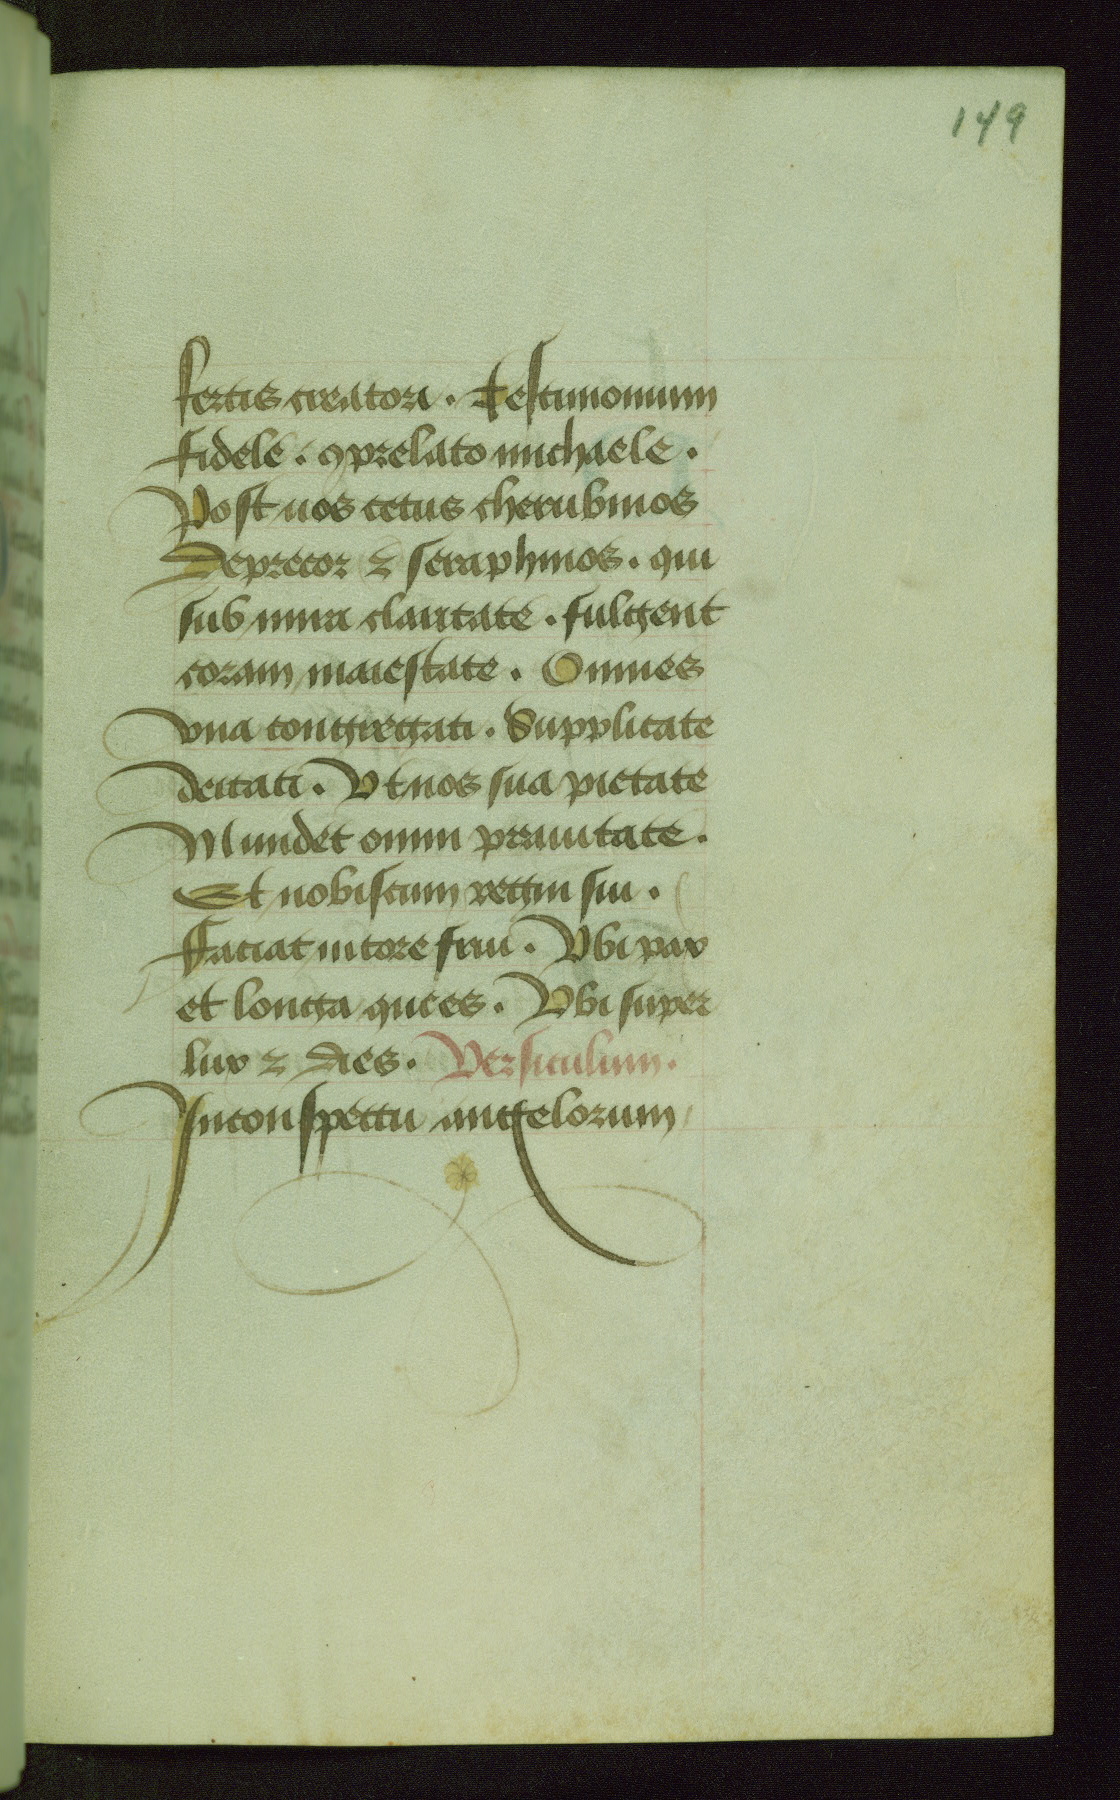 149
fertis creatori. Testimonium
fidele. ꝯprelato michaele.
Post uos cetus cherubinos
Deprecor ⁊ seraphinos. qui
sub mira claritate. fulgent
coram maiestate. Omnes
vna congregati. Supplicate
deitati. Vt nos sua pietate
Mundet omni prauitate.
Et nobiscum regni sui.
Faciat in core frui. Vbi pax
et longa quies. Vbi super
lux ⁊ dies. Versiculum.
In conspectu angelorum